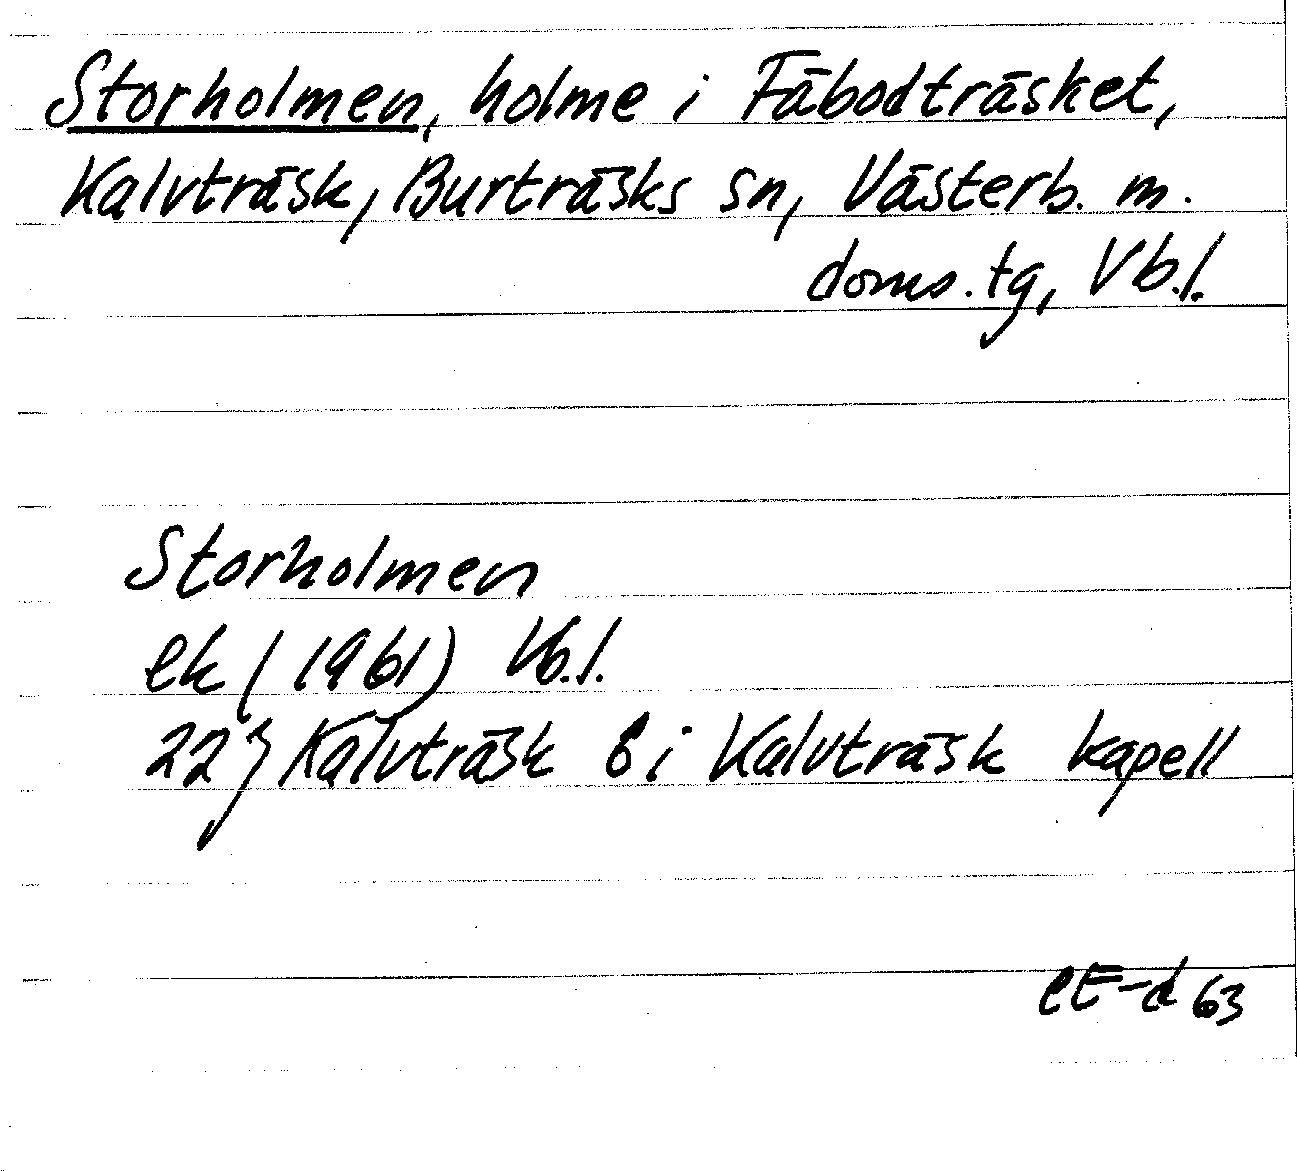 Storholmen, holme i Fäbodträsket,
Kalvträsk, Burträsks sn, Västerb. m.
doms.tg, Vb.l.
Storholmen
ek (1961) Vb.l.
22 j Kalvträsk 8 i Kalvträsk kapell
EE-d 63